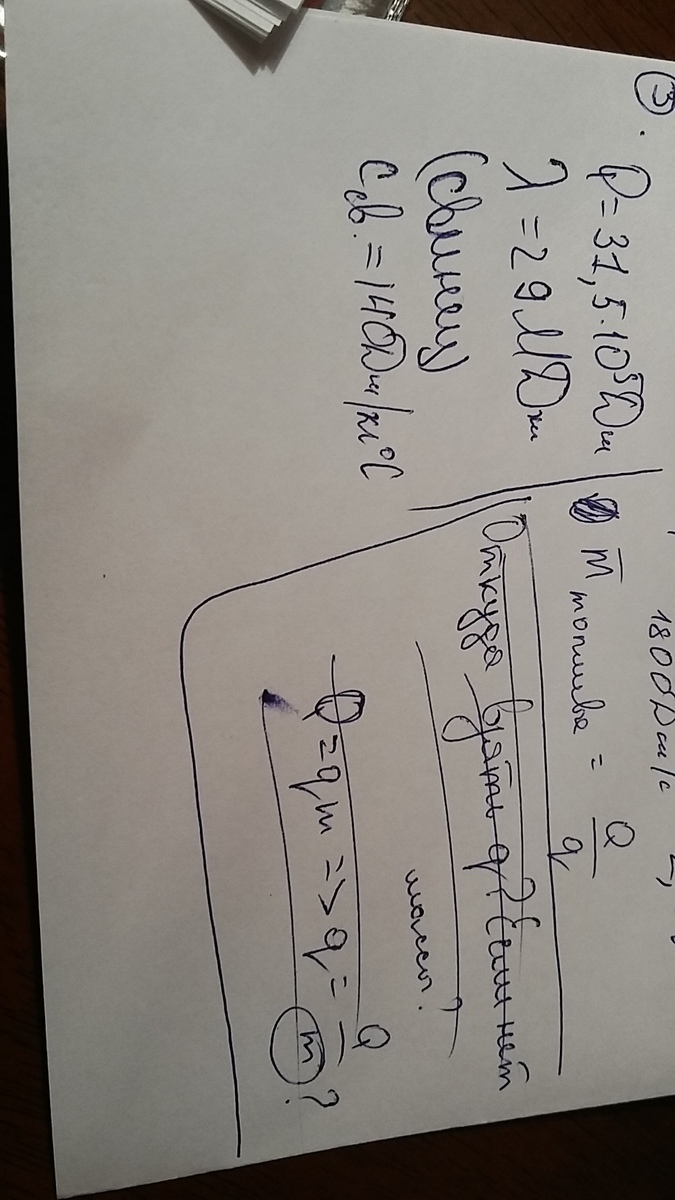 ③.
Q = 31,5·10⁵Дж
λ = 29МДж
(свинец)
Cсв. = 140Дж/кг°C
180Дж/с
m топлива = Q/q
Откуда взять q? Если нет
массы?
Q = qm => q = Q/m ?